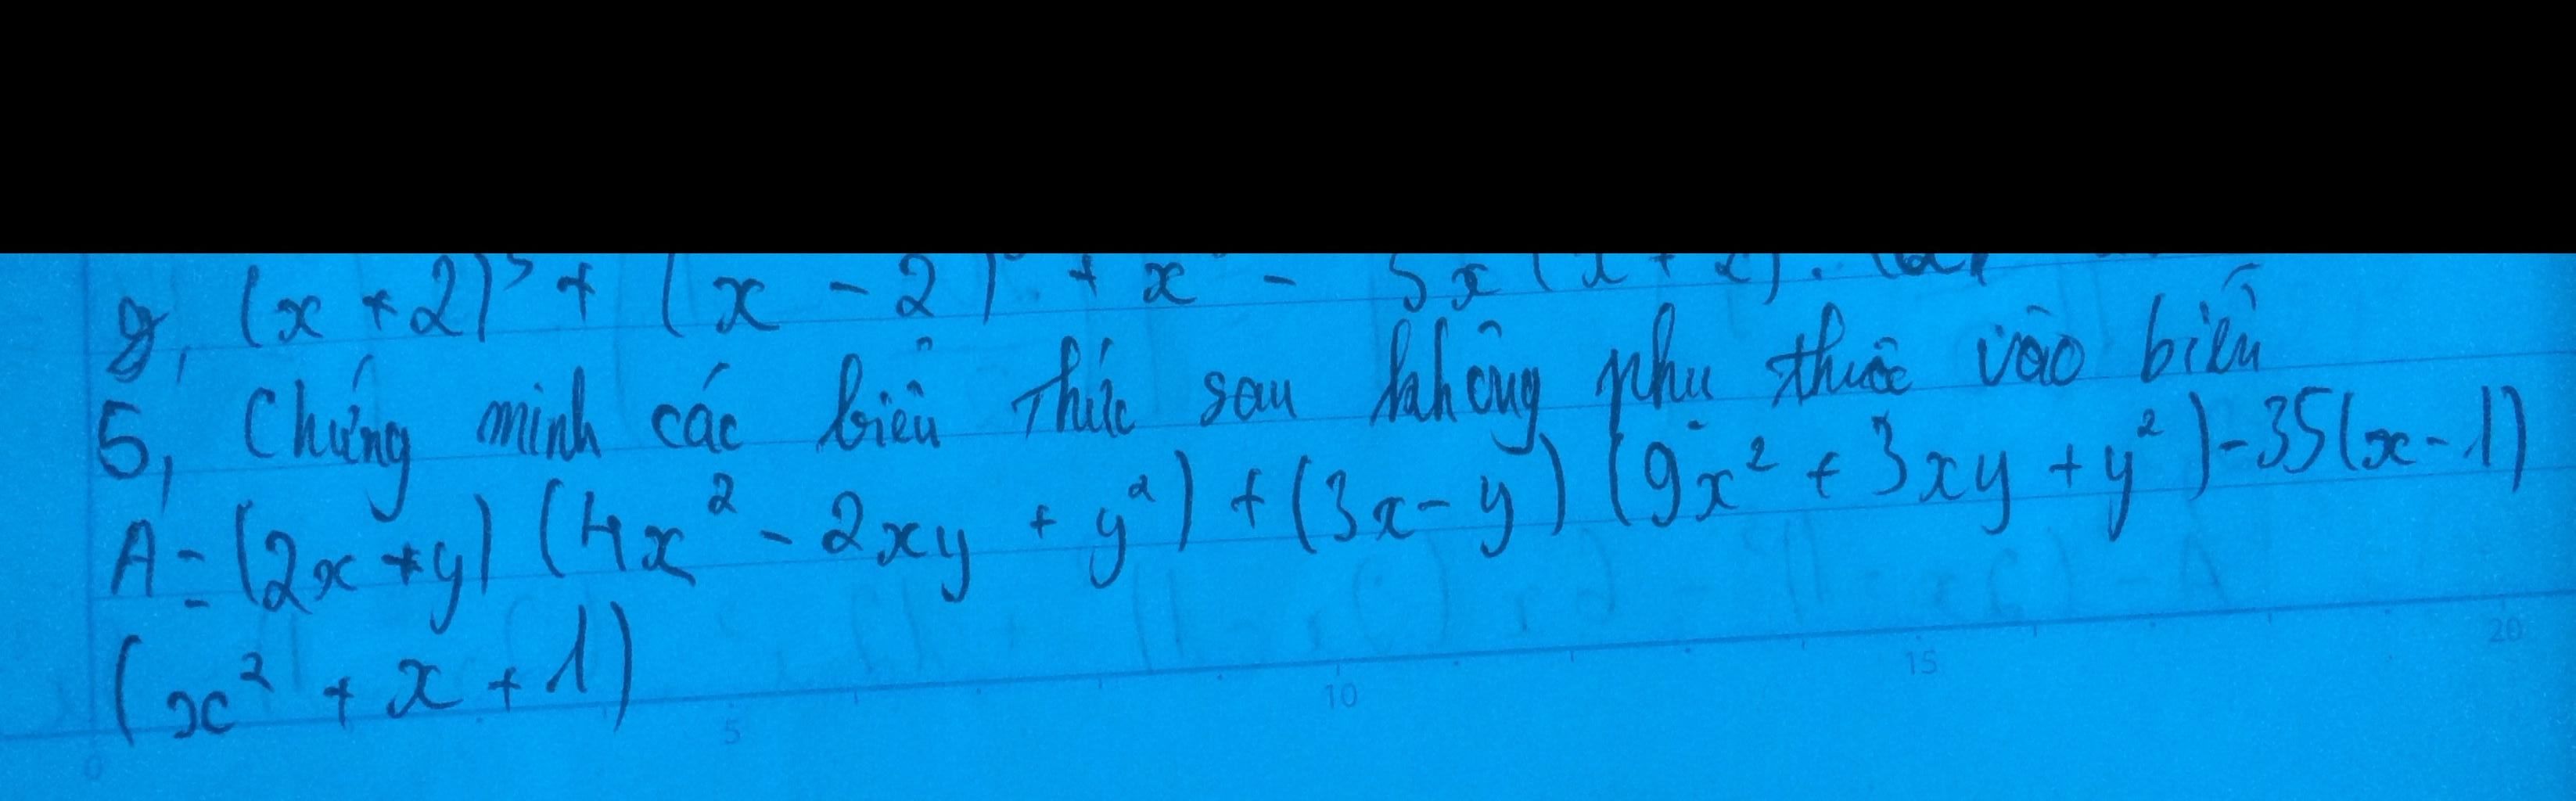 g, (x + 2)³ + (x - 2) + x - 5x(x + 2).
5, Chứng minh các biểu thức sau không phụ thuộc vào biến
A = (2x + y) (4x² - 2xy + y²) + (3x - y) (9x² + 3xy + y²) - 35(x - 1)
(x² + x + 1)
0 5 10 15 20